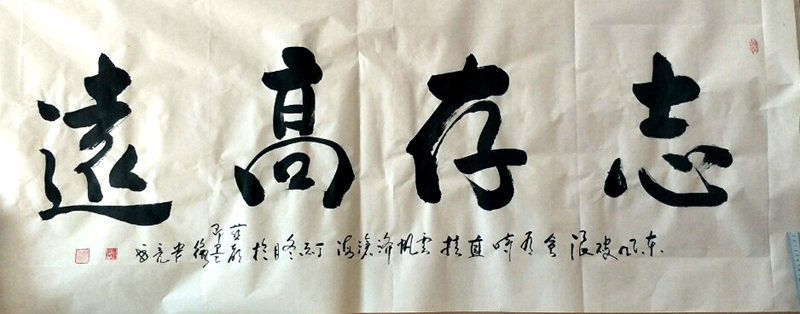 志存高遠
長風破浪會有時直挂雲帆濟滄海丁亥冬月於